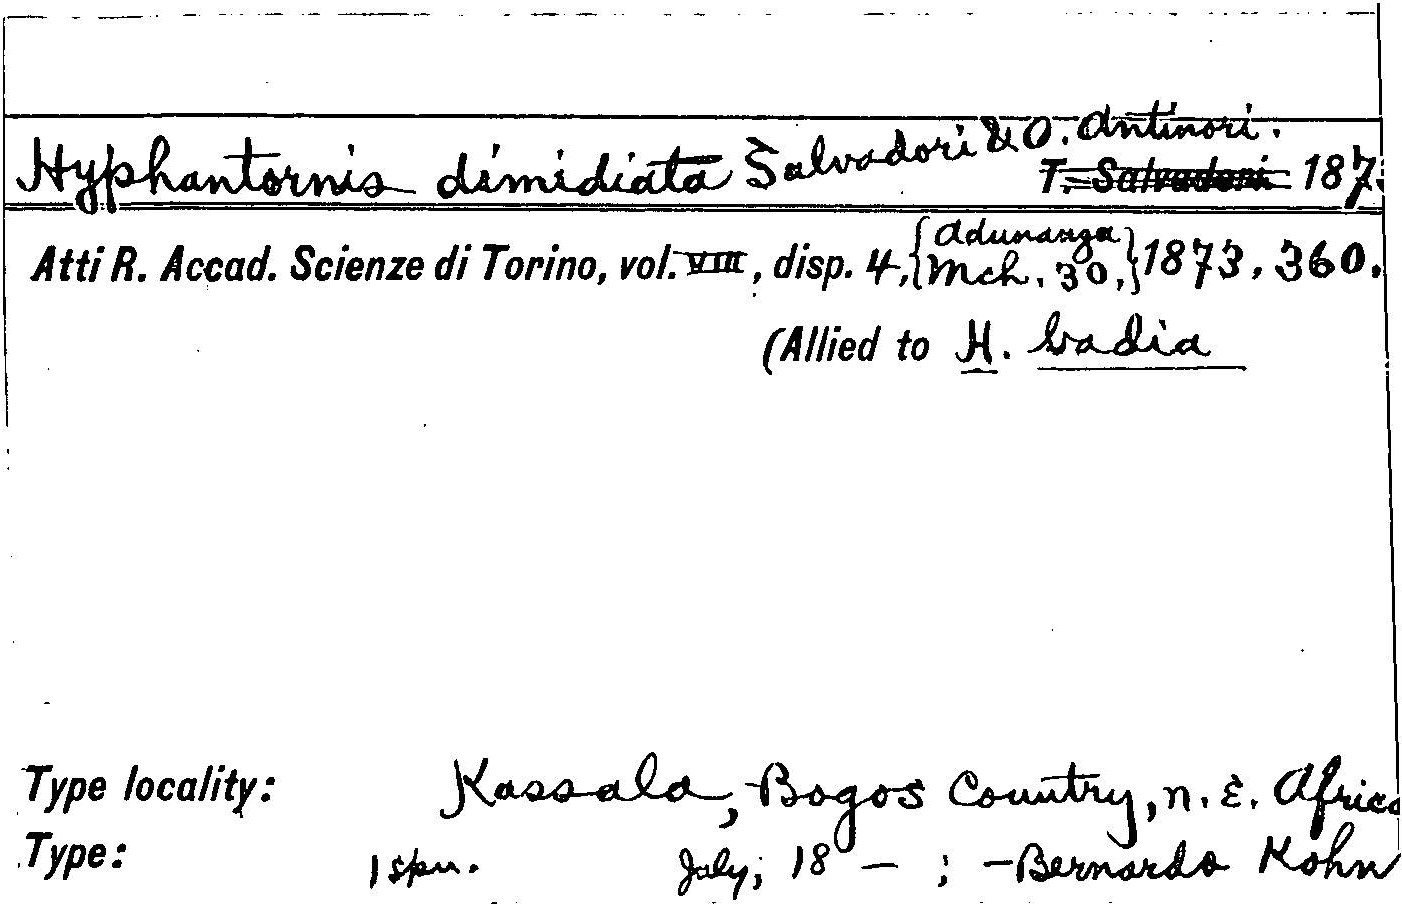 Hyphantornis dimidiata Salvadori & O. Antinori.
T. Salvadori 187
Atti R. Accad. Scienze di Torino, vol. VIII, disp. 4, {Adunanza Mch. 30,} 1873, 360.
(Allied to H. badia
Type locality: Kassala, Bogos Country, N. E. Africa
Type: 1 spn. July, 18 — ; — Bernardo Kohn